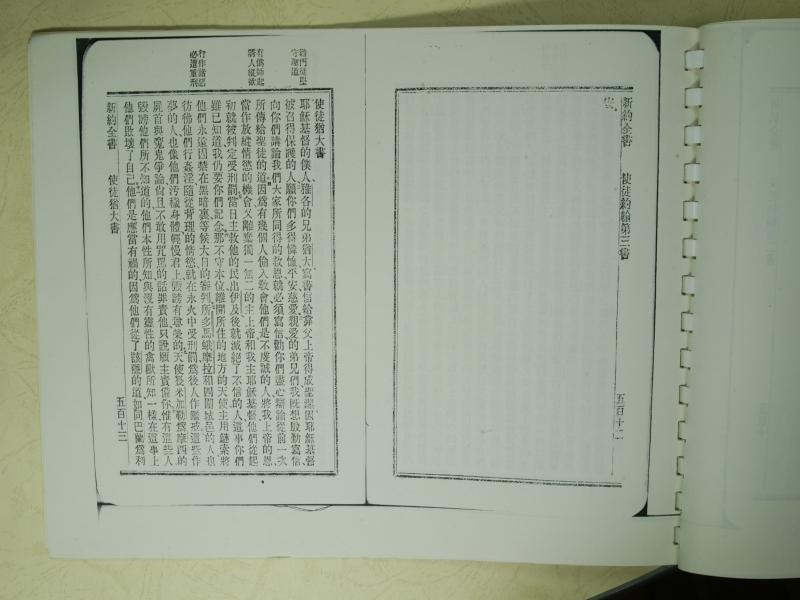 新約全書 使徒約翰第三書 五百十二
安
守諸道
有僞師起
將人縱欲
行作諸惡
必遭重刑
使徒猶大書
耶穌基督的僕人雅各的兄弟猶大寫書信給靠父上帝得成聖潔因耶穌基督
被召得保護的人願你們多得憐恤平安慈愛親愛的弟兄們我旣想殷勤寫信
向你們講論我們大家所同得的救恩就必須寫信勸你們盡心辯論從前一次
所傳給聖徒的道因爲有幾個人偷入敎會他們是不虔誠的人將我上帝的恩
當作放縱情慾的機會又離棄獨一無二的主上帝和我主耶穌基督他們從起
初就被判定受刑罰當日主救他的民出伊及後就滅絕了不信的人這事你們
雖已知道我仍要你們記念那不守本位離開所住的地方的天使主用鏈索將
他們永遠囚禁在黑暗裏等候大日的審判所多馬蛾摩拉和四圍城邑的人也
彷彿他們行姦淫隨從背理的情慾就在永火中受刑罰爲後人作鑑戒這些作
夢的人也像他們汚穢身體輕慢君上毀謗有尊榮的天使長米加勒爲摩西的
屍首與魔鬼爭論尙且不敢用咒罵的話罪責他只說願主責備你惟有這些人
毀謗他們所不知道的他們本性所知與沒有靈性的禽獸所知一樣在這事上
他們敗壞了自己他們是應當有禍的因爲他們從了該隱的道如同巴蘭爲利
新約全書 使徒猶大書 五百十三